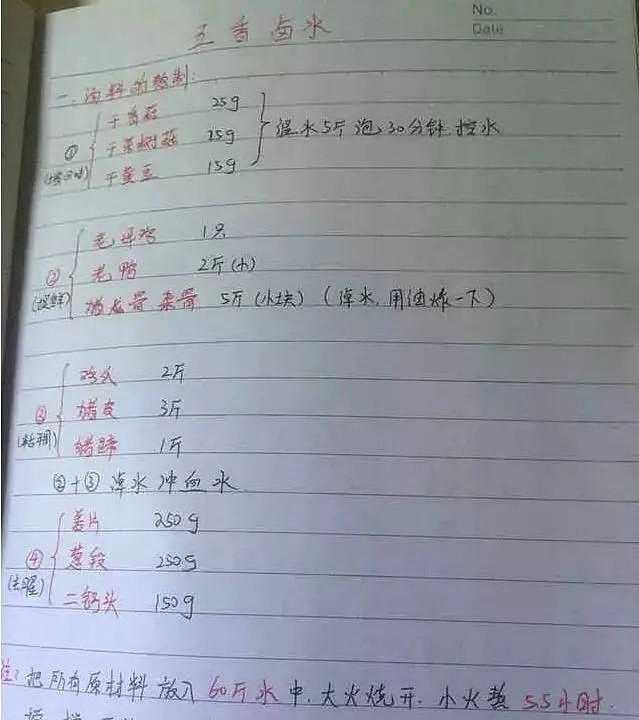 No.
Date
五香卤水
一、汤料的熬制:
干香菇 25g
① 干茶树菇 25g 温水5斤泡30分钟控水
干黄豆 15g
老母鸡 1只
② 老鸭 2斤(小)
(提鲜) 猪龙骨 杂骨 5斤(小块)(焯水,用油炸一下)
鸡头 2斤
③ 猪皮 3斤
(粘稠) 猪蹄 1斤
②+③ 焯水 冲血水
姜片 250g
④ 葱段 250g
(去腥) 二锅头 150g
注:把所有原材料放入60斤水中.大火烧开.小火熬5.5小时.